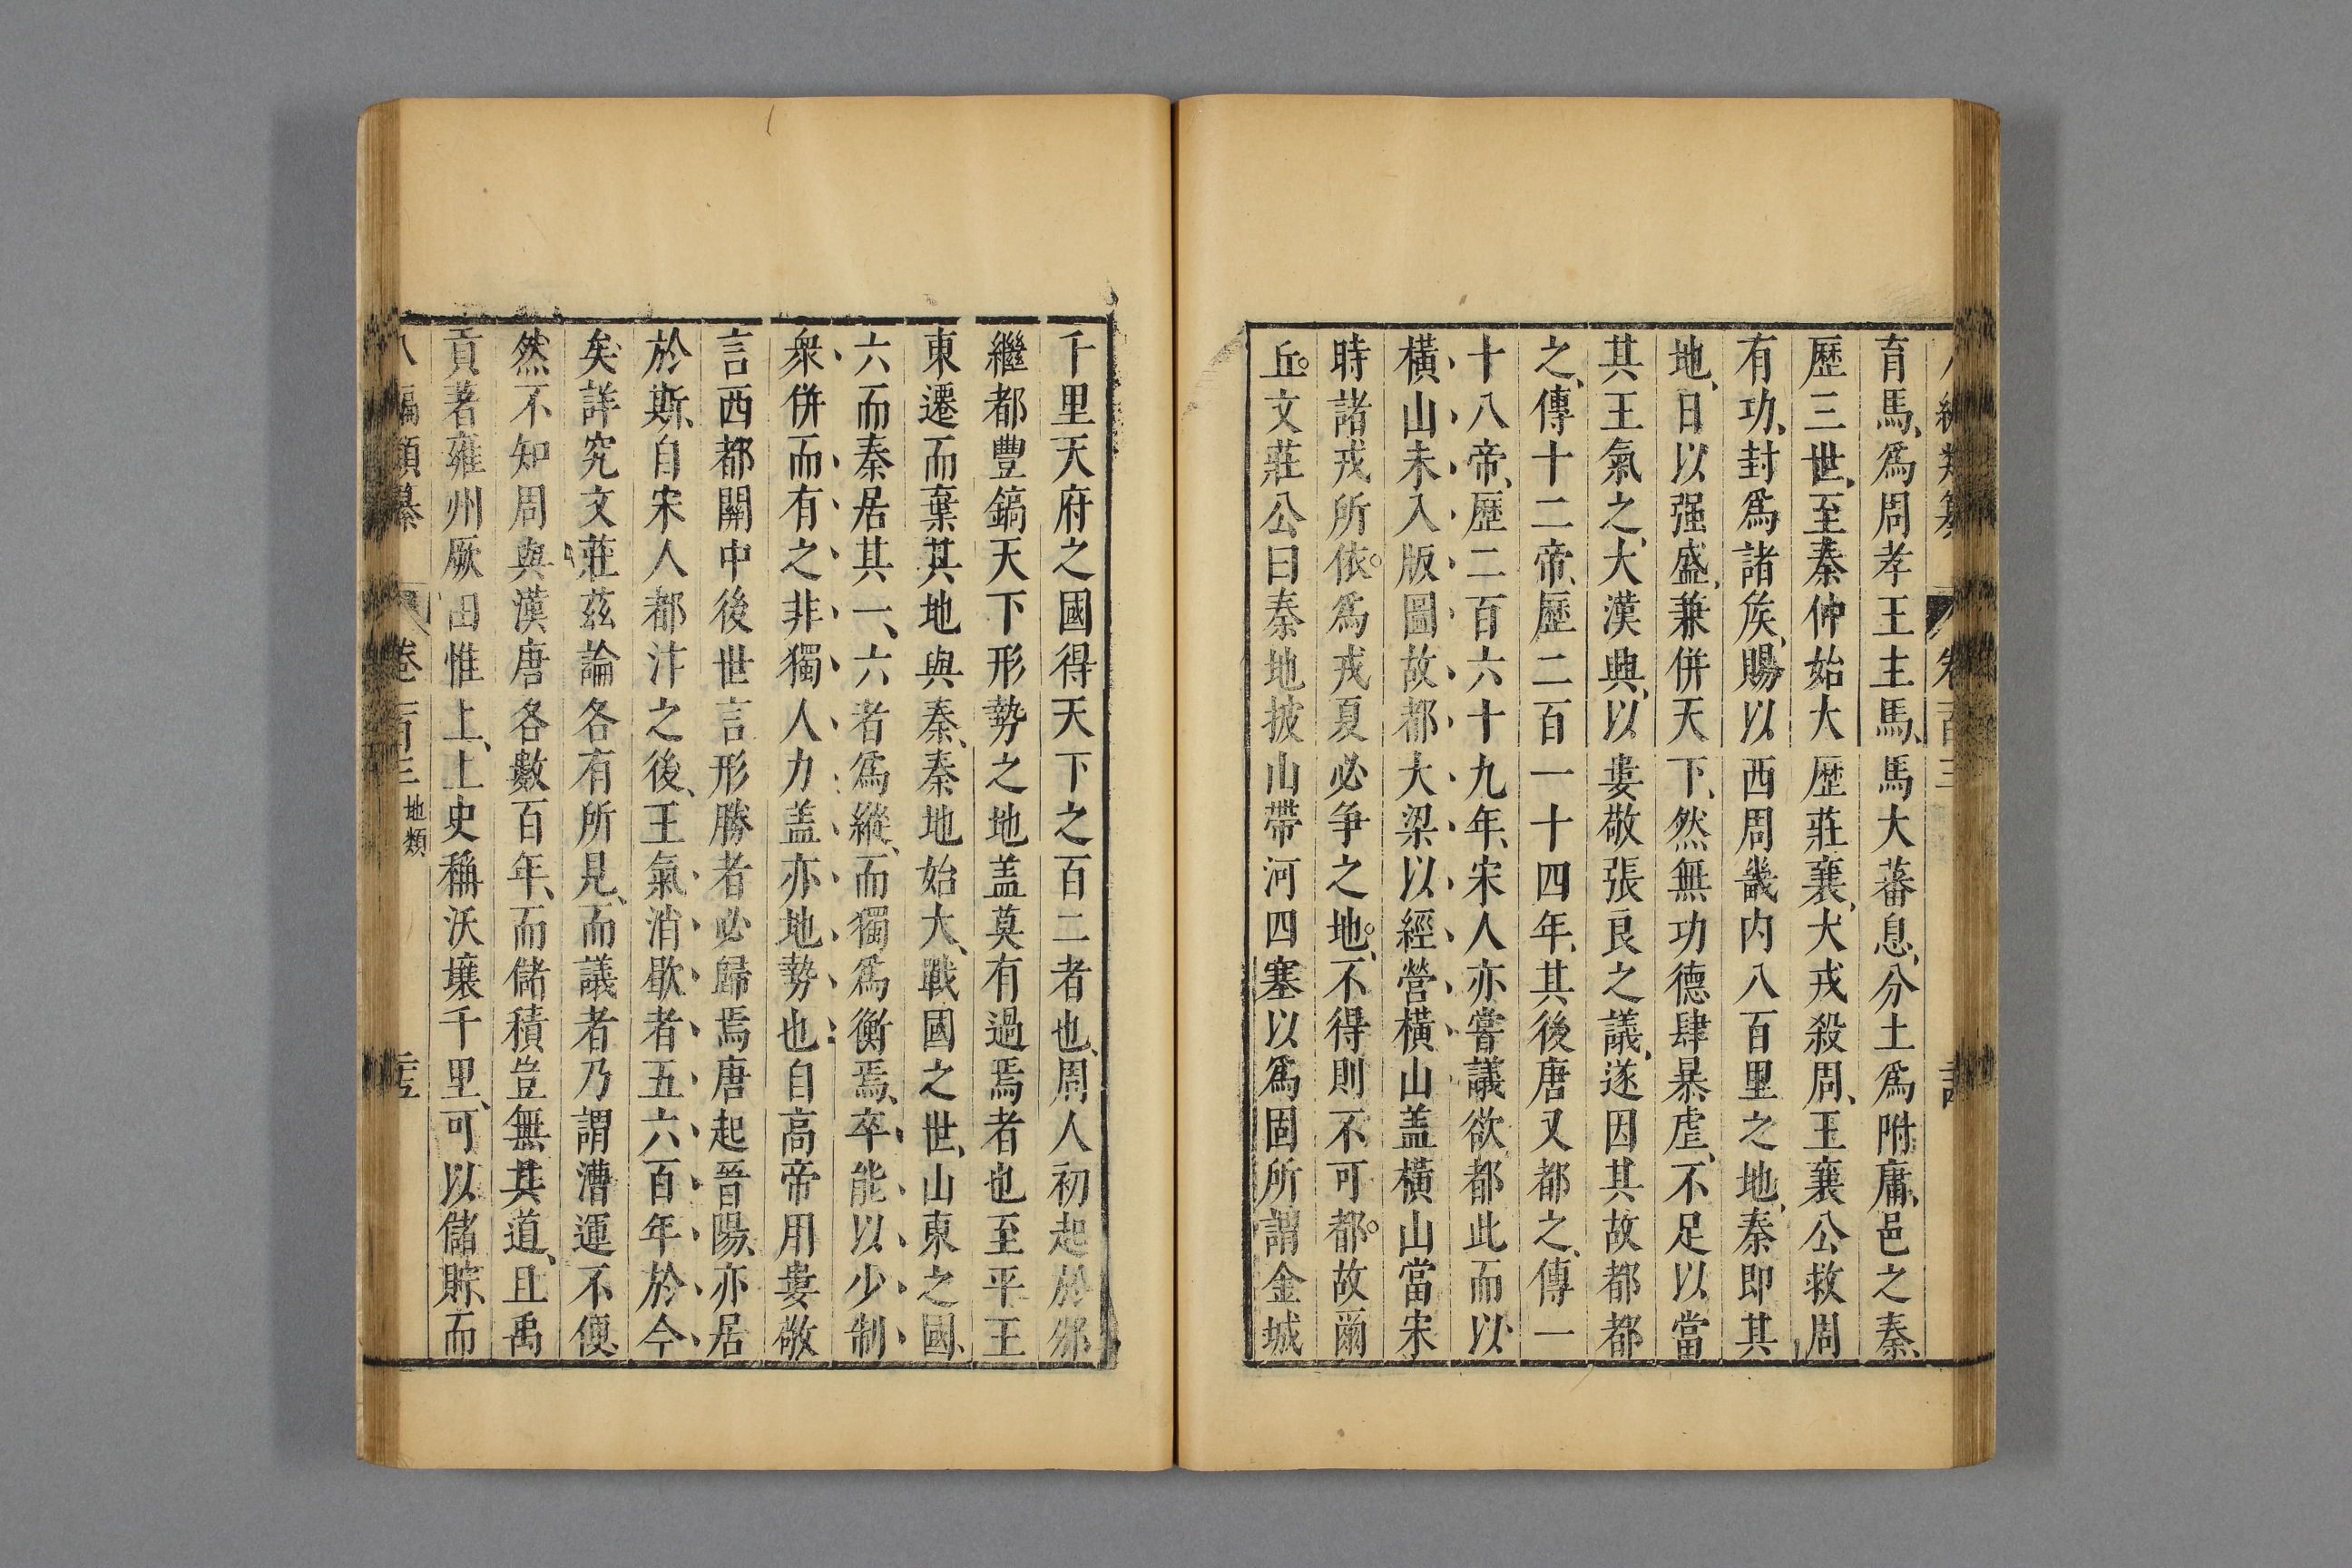 育馬、爲周孝王主馬、馬大蕃息、分土爲附庸、邑之秦、
歷三世、至秦仲始大歷莊襄、犬戎殺周、王襄公救周
有功、封爲諸矦、賜以西周畿内八百里之地、秦即其
地、日以强盛、兼併天下、然無功德肆暴虐、不足以當
其王氣之、大漢興、以婁敬張良之議、遂因其故都都
之、傳十二帝、歷二百一十四年、其後唐又都之、傳一
十八帝、歷二百六十九年、宋人亦嘗議欲都此而以
橫山未入版圖故都大梁以經營橫山盖橫山當宋
時諸戎所依。爲戎夏必争之地。、不得則不可都。故爾
丘。文莊公曰秦地披山帶河四塞以爲固所謂金城
千里天府之國得天下之百二者也、周人初起於邠
繼都豐鎬天下形勢之地盖莫有過焉者也至平王
東遷而棄其地與秦、秦地始大、戰國之世、山東之國、
六而秦居其一、六者爲縱、而獨爲衡焉、卒能以少制
衆併而有之非獨人力盖亦地勢也自高帝用婁敬
言西都關中後世言形勝者必歸焉唐起晉陽、亦居
於斯、自宋人都汴之後、王氣消歇者五六百年於今
矣、詳究文莊茲論各有所見、而議者乃謂漕運不便、
然不知周與漢唐各數百年、而儲積豈無其道、且禹
貢著雍州厥田惟上、上史稱沃壤千里、可以儲賍、而
八編類纂 卷一百三 地類